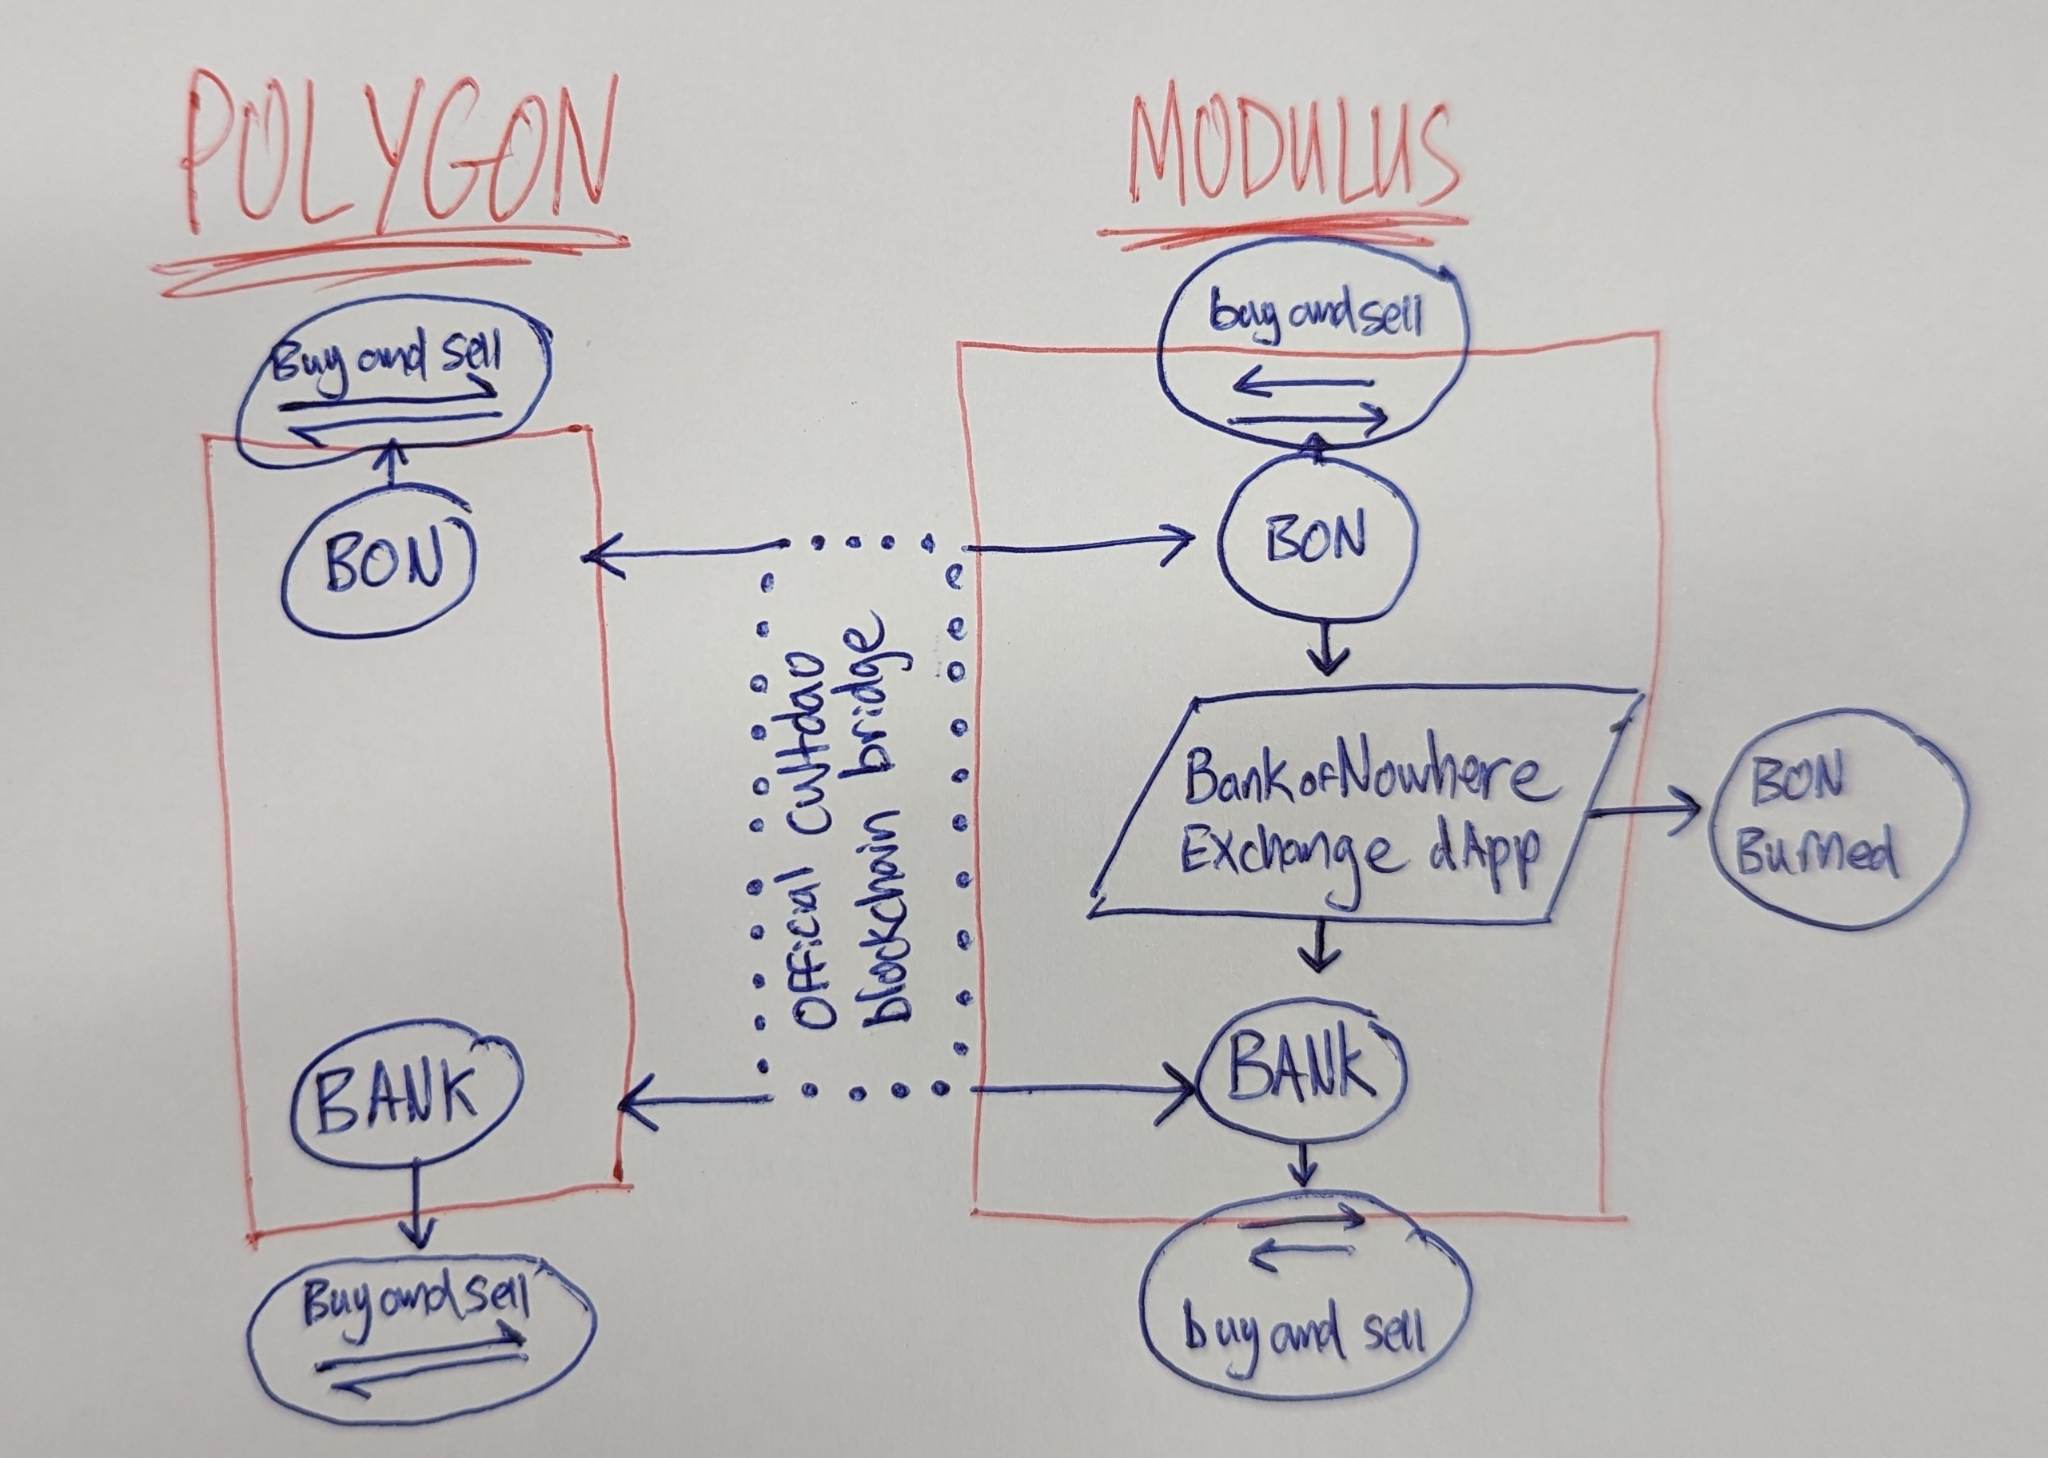 POLYGON
Buy and sell
BON
BANK
Buy and sell
offical cultdao
blockchain bridge
MODULUS
buy and sell
BON
BankofNowhere
Exchange dApp
BON
Burned
BANK
buy and sell